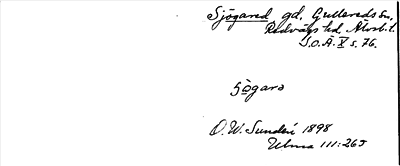 Sjögared gd, Gullereds sn,
Redvägs hd, Älvsb. l.
S.O.Ä. X s. 76.
sögarə
O. W. Sundén 1898
Ulma 111:265